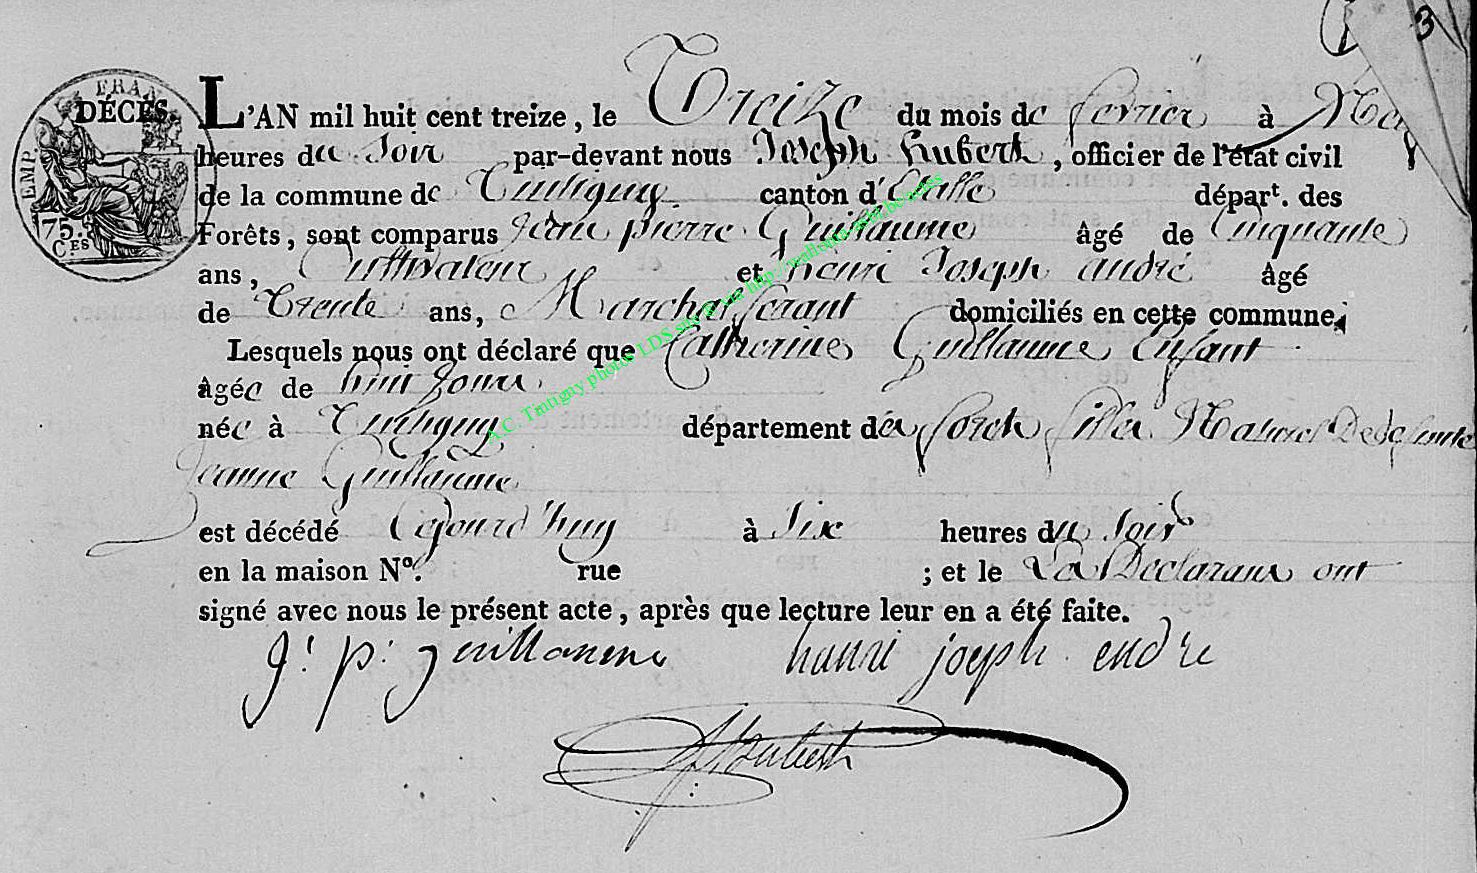 3
FRAN
EMP.
75.
C.ES
DÉCÈS
L'AN mil huit cent treize, le Treize du mois de fevrier à
heures du Soir par-devant nous Joseph hubert, officier de l'état civil
de la commune de Tintigny canton d'Etalle départ. des
Forêts, sont comparus Jean pierre Guillaume âgé de Cinquante
ans, Cultivateur et henri Joseph andré âgé
de Trente ans, Marchat forant domiciliés en cette commune,
Lesquels nous ont déclaré que Catherine Guillaume Enfant
âgée de huit Jours
née à Tintigny département des foreh fille Naturel De
Jeanne Guillaume
est décédé Cejourd'huy à Six heures du Soir
en la maison Nº. rue ; et le Les Declarans ont
signé avec nous le présent acte, après que lecture leur en a été faite.
j: p: guillaume hanri joseph endre
Hubert
A.C. Tintigny photos LDS